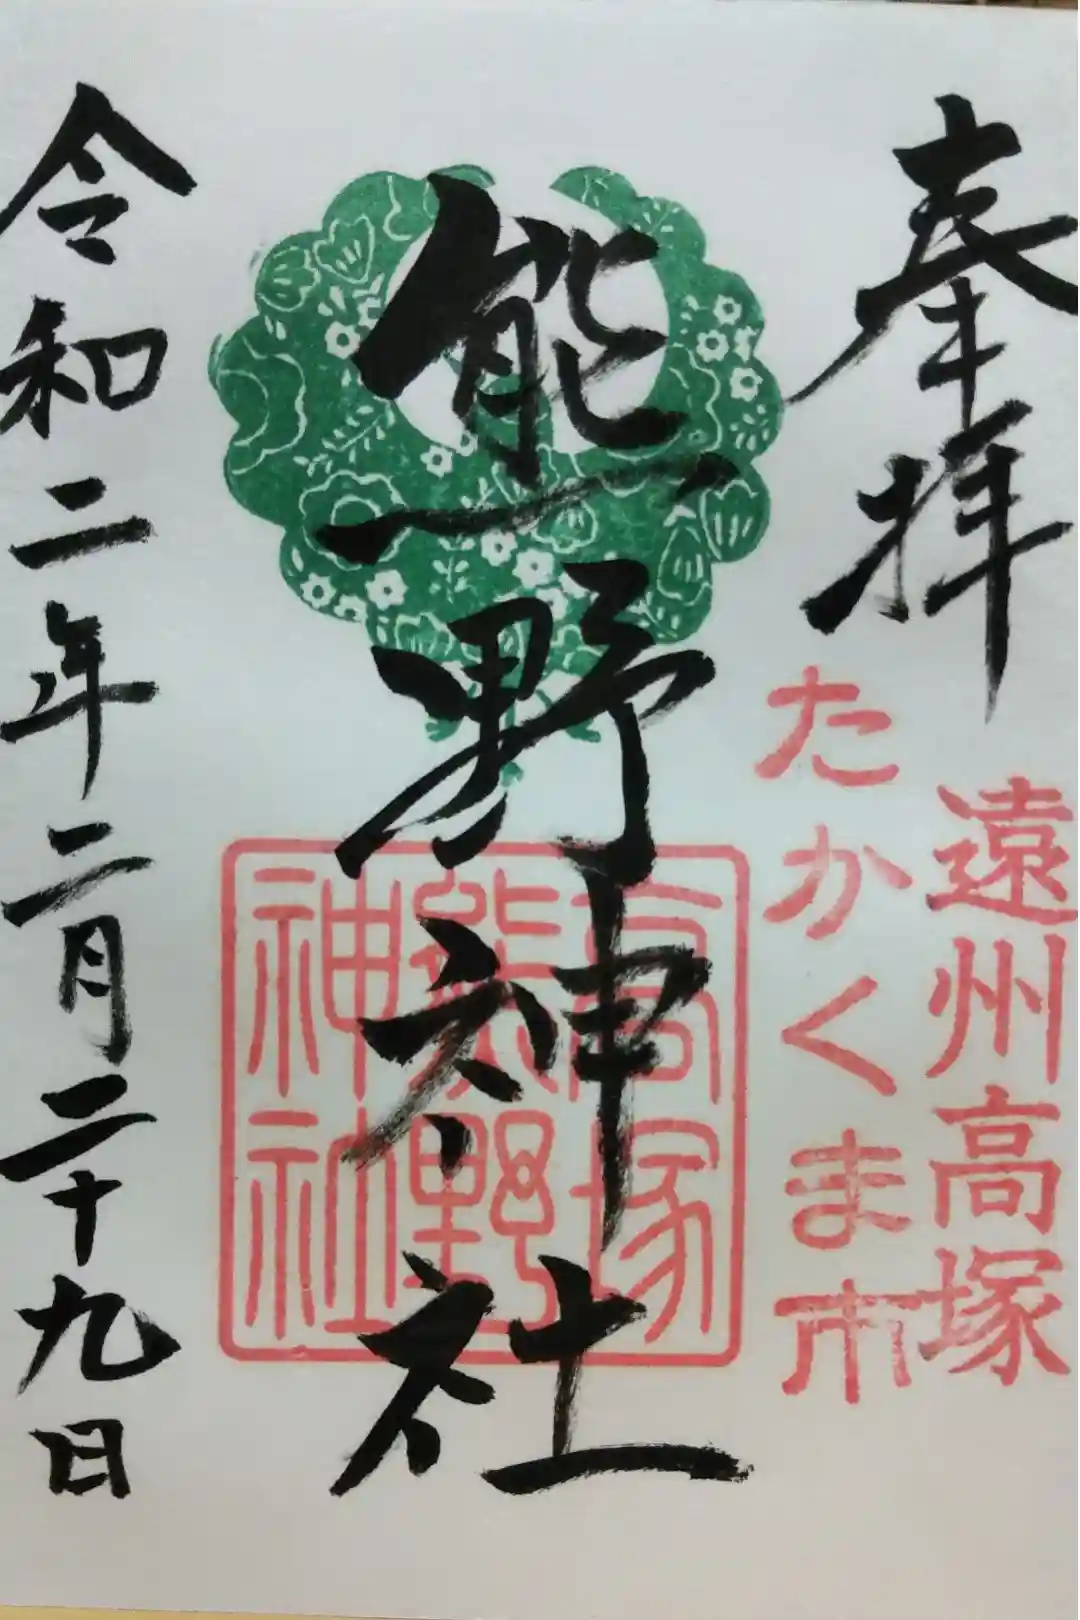 奉拝
遠州高塚
たかくま市
熊野神社
高塚
熊野
神社
令和二年二月二十九日